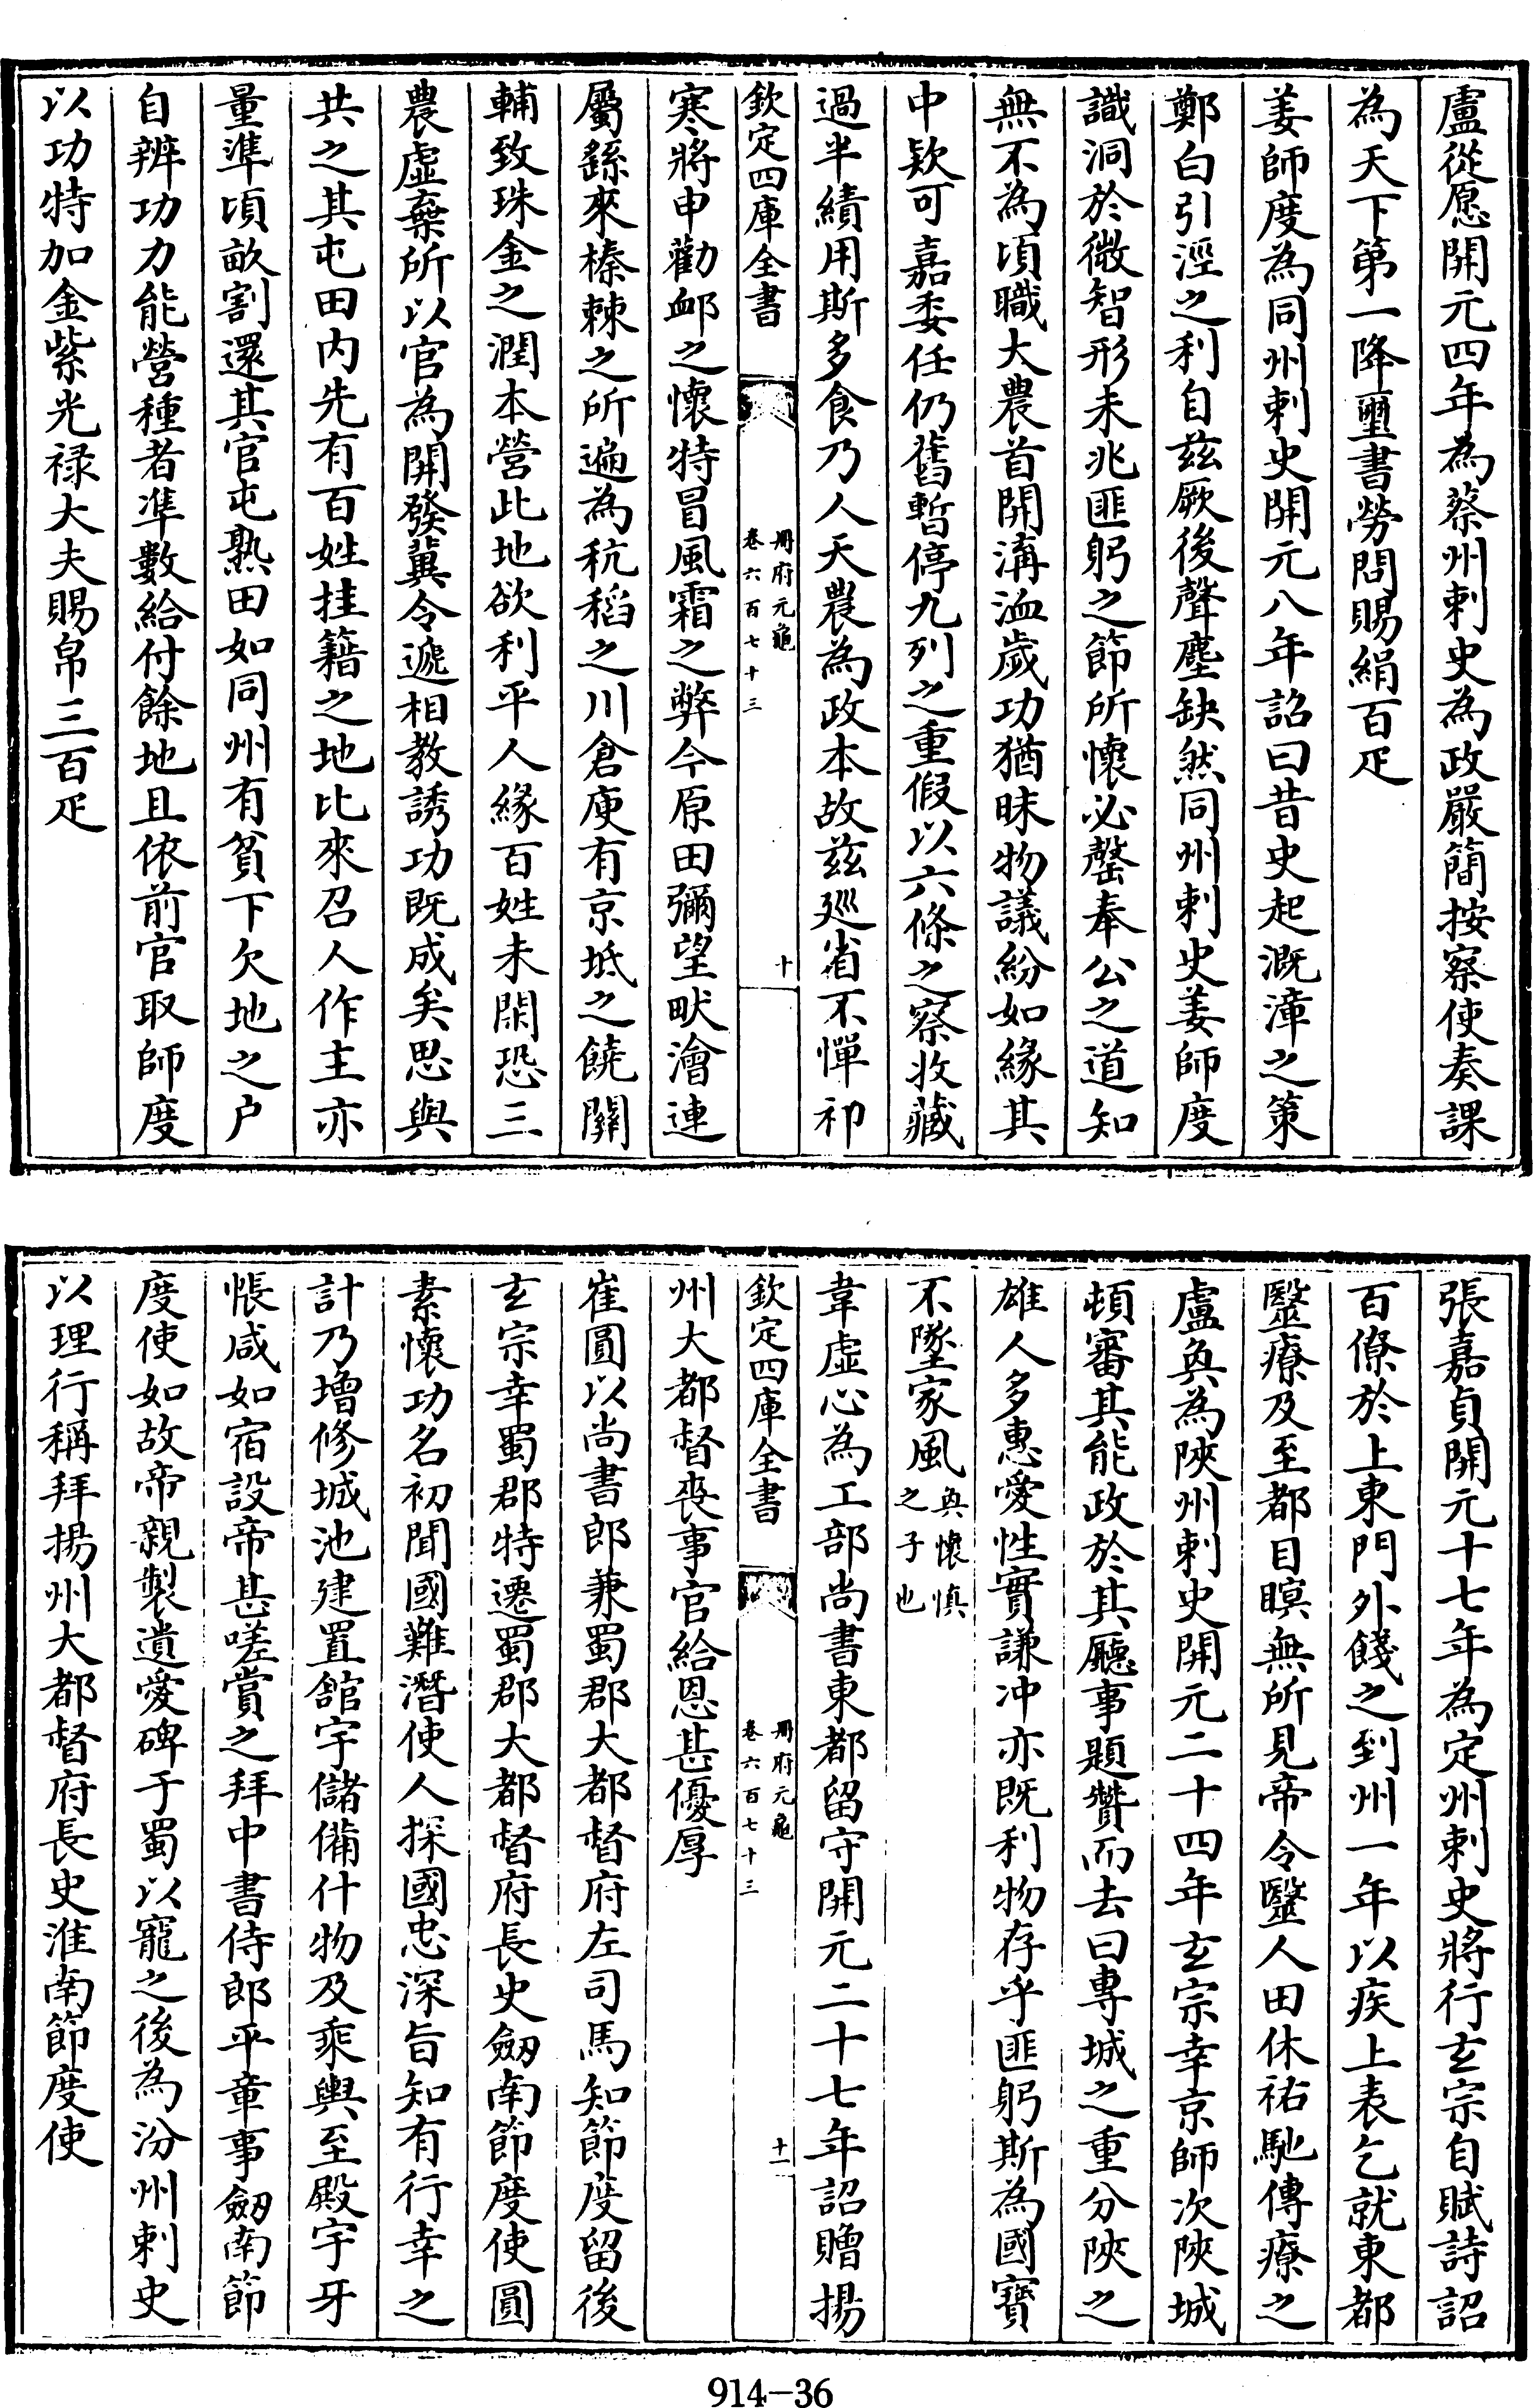 盧從愿開元四年為蔡州刺史為政嚴簡按察使奏課
為天下第一降璽書勞問賜絹百疋
姜師度為同州刺史開元八年詔曰昔史起溉漳之策
鄭白引涇之利自兹厥後聲塵缺然同州刺史姜師度
識洞於微智形未兆匪躬之節所懷必罄奉公之道知
無不為頃職大農首開溝洫歲功猶昧物議紛如緣其
中欵可嘉委任仍舊暫停九列之重假以六條之察收藏
過半績用斯多食乃人天農為政本故兹廵省不憚祁
欽定四庫全書
册府元龜
卷六百七十三
十
寒將申勸衈之懷特冒風霜之弊今原田彌望畎澮連
屬繇來榛棘之所遍為秔稻之川倉庾有京坻之饒關
輔致珠金之潤本營此地欲利平人緣百姓未閑恐三
農虛棄所以官為開發冀令遞相教誘功既成矣思與
共之其屯田内先有百姓挂籍之地比來召人作主亦
量準頃畝割還其官屯熟田如同州有貧下欠地之户
自辨功力能營種者準數給付餘地且依前官取師度
以功特加金紫光禄大夫賜帛三百疋
張嘉貞開元十七年為定州刺史將行玄宗自賦詩詔
百僚於上東門外餞之到州一年以疾上表乞就東都
醫療及至都目瞑無所見帝令醫人田休祐馳傳療之
盧奐為陜州刺史開元二十四年玄宗幸京師次陜城
頓審其能政於其廳事題贊而去曰專城之重分陜之
雄人多惠愛性實謙冲亦既利物存乎匪躬斯為國寶
不墜家風奐懷慎之子也
韋虛心為工部尚書東都留守開元二十七年詔贈揚
欽定四庫全書
册府元龜
卷六百七十三
十一
州大都督喪事官給恩甚優厚
崔圓以尚書郎兼蜀郡大都督府左司馬知節度留後
玄宗幸蜀郡特遷蜀郡大都督府長史劒南節度使圓
素懷功名初聞國難潛使人探國忠深旨知有行幸之
計乃增修城池建置舘宇儲備什物及乘輿至殿宇牙
帳咸如宿設帝甚嗟賞之拜中書侍郎平章事劒南節
度使如故帝親製遺愛碑于蜀以寵之後為汾州刺史
以理行稱拜揚州大都督府長史淮南節度使
914-36